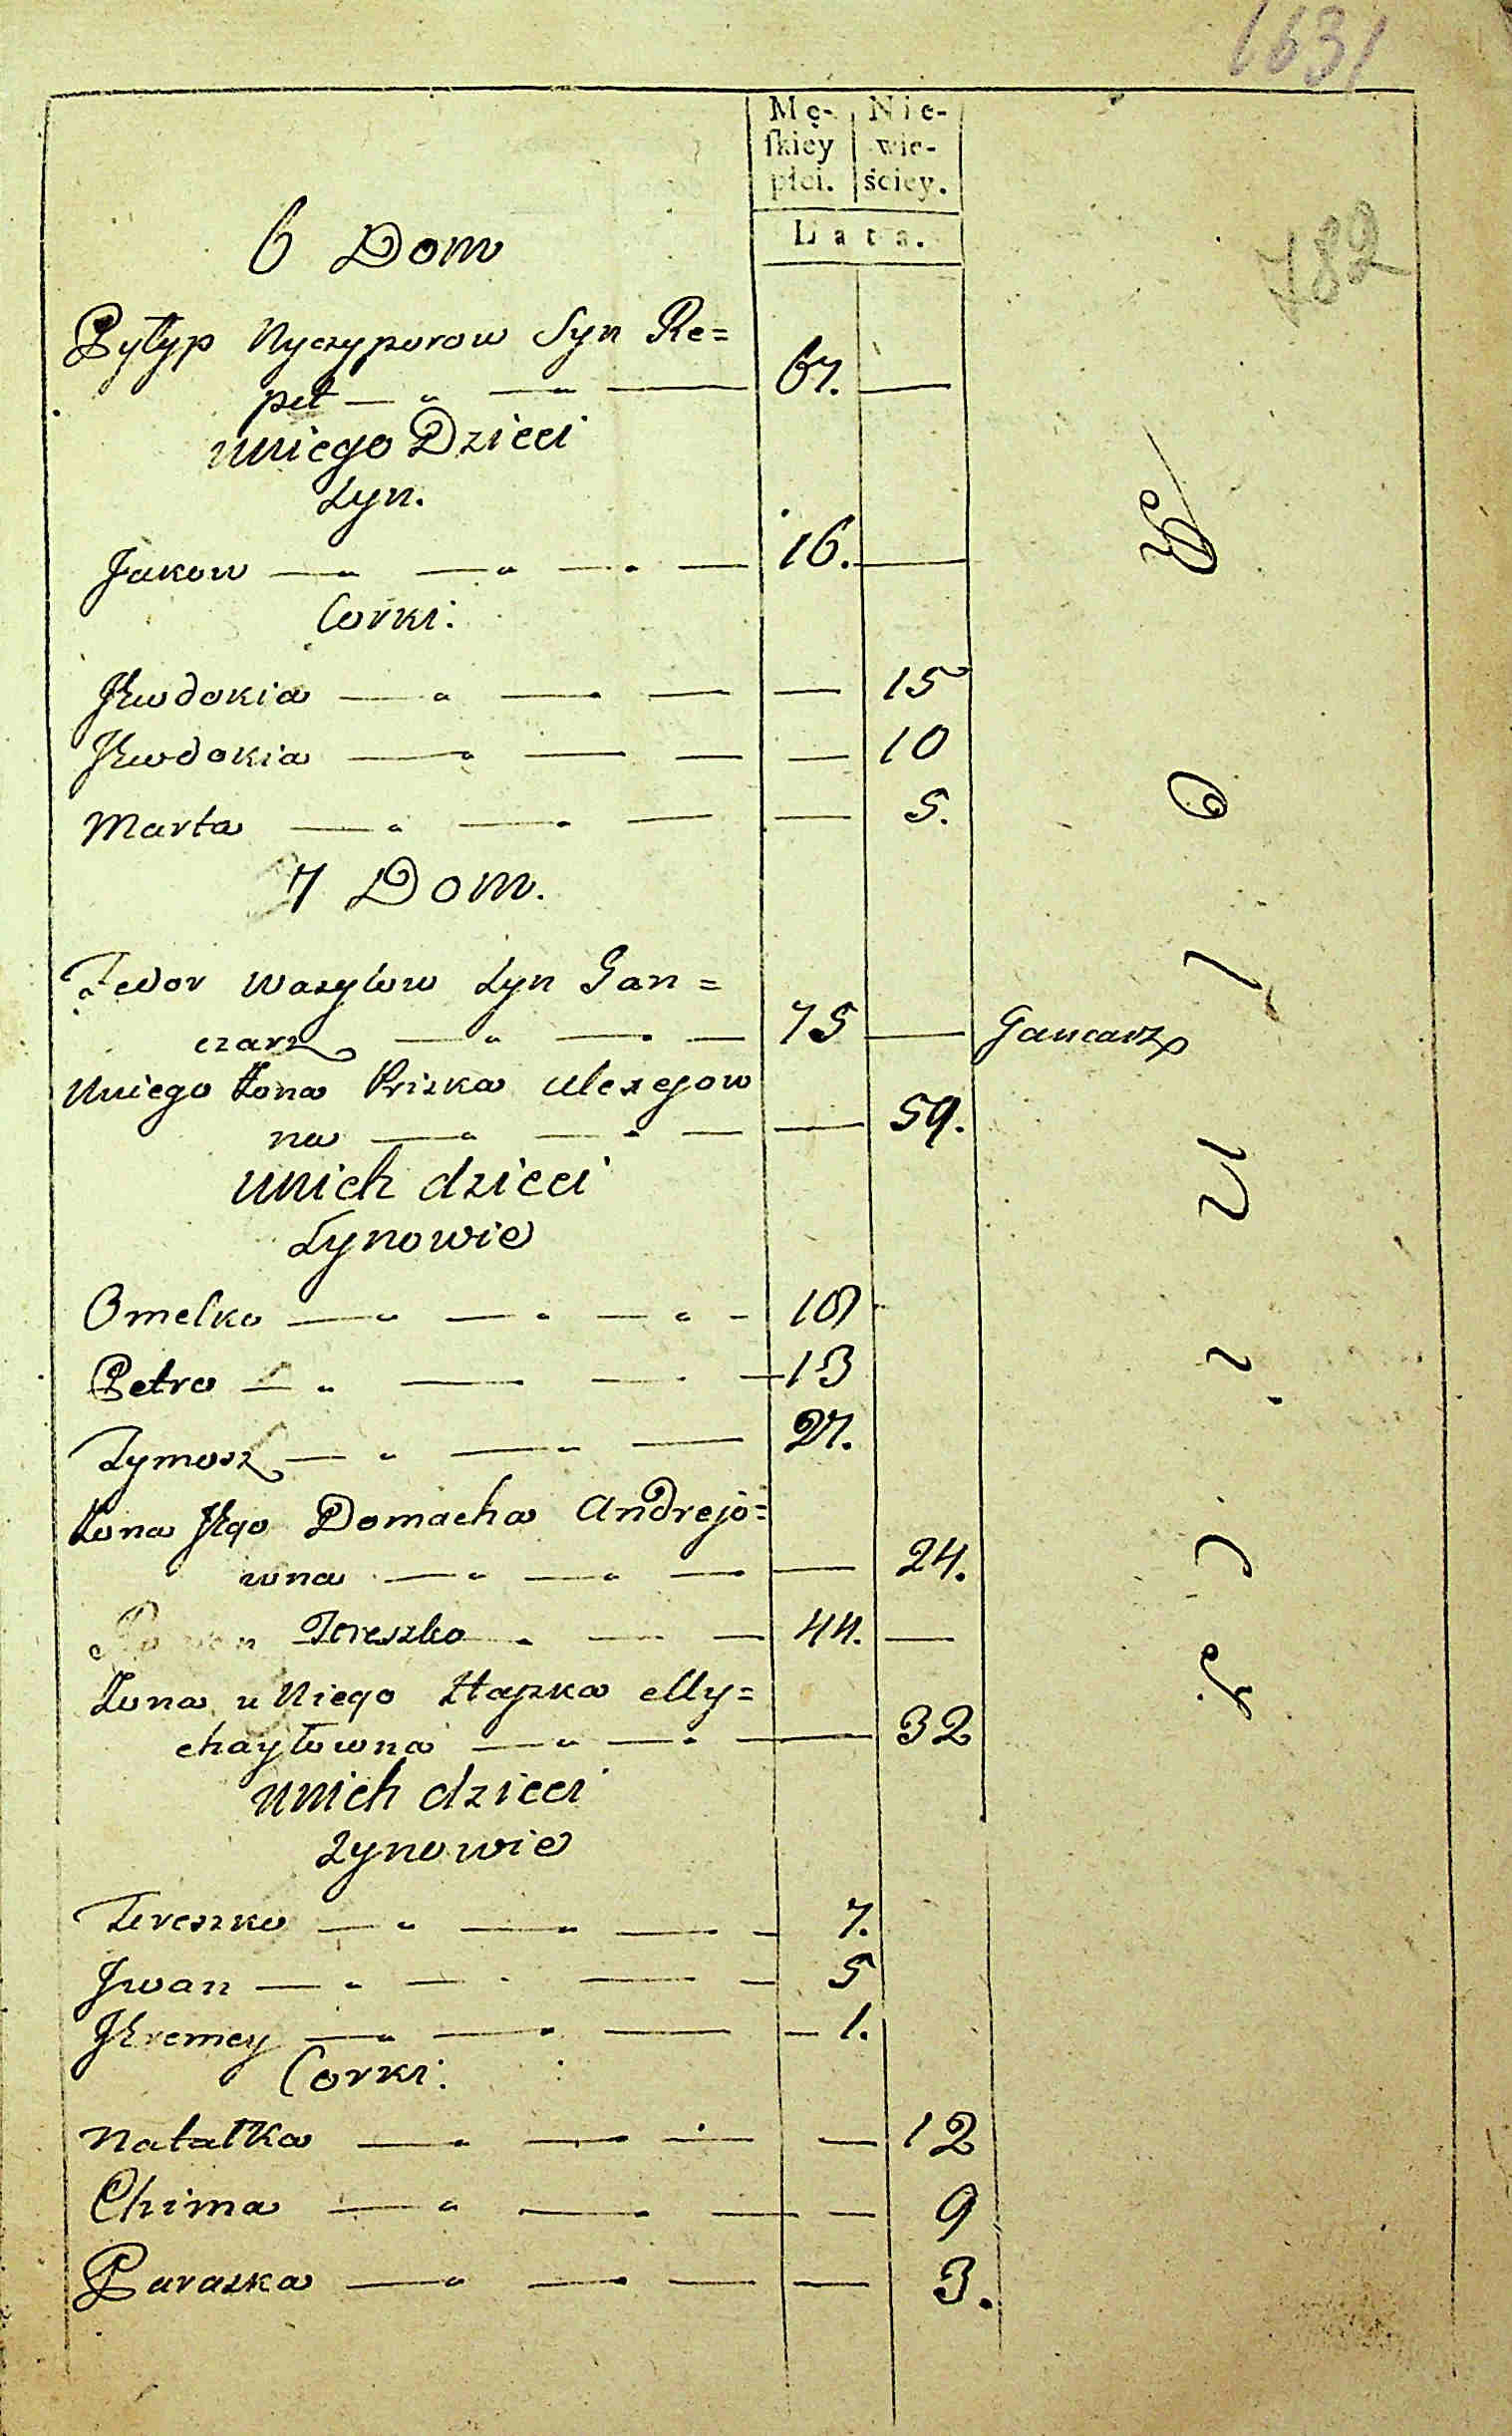 1631
Mę- Nie-
skiey wie-
płci. ściey.
Lata.
782
6 Dom
Pyłyp Nyczyporow Syn Re=
pet 67.
uniego Dzieci
Syn.
Jakow 16.
Corki:
Jewdokia 15
Jewdokia 10
Marta 5.
7 Dom.
Fedor Wasylow Syn Gan=
czarz 75 Gancarz
Uniego Żona Priska Alexejow
na 59.
unich dzieci
Synowie
Omelko 18
Petro 13
Tymosz 27.
Żona Jego Domacha Andrejo=
wna 24.
Tereszko 44.
Żona u Niego Hapka My=
chayłowna 32
unich dzieci
Synowie
Tereszko 7.
Jwan 5
Jeremey 1.
Corki:
Natałka 12
Chima 9
Paraska 3.